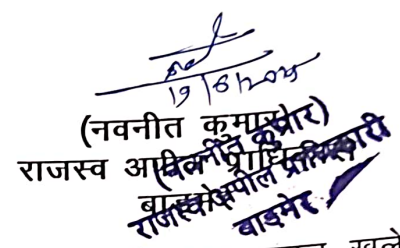 19/6/2025
(नवनीत कुमार)
राजस्व अपील
(नवनीत कुमार)
राजस्व अपील प्राधिकारी
बाडमेर